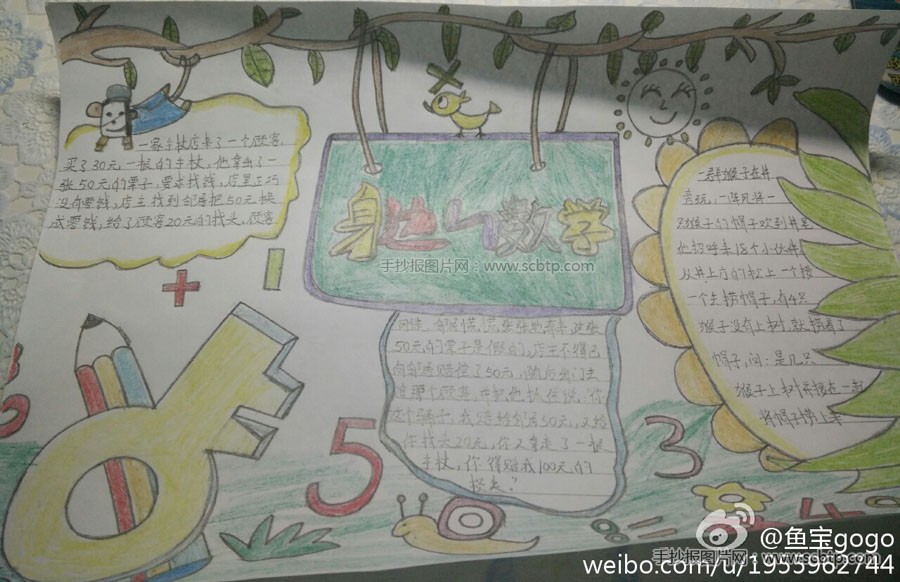 一家手杖店来了一个顾客,
买了30元一根的手杖,他拿出了一
张50元的票子,要求找钱,店里正巧
没有零钱,店主找到邻居把50元换
成零钱,给了顾客20元的找头,顾客
身边的数学
手抄报图片网:www.scbtp.com
慌张张地看着这张
50元的票子是假的,店主不得已
向邻居赔偿了50元,随后出门去
并把他抓住说:你
这个骗子,我赔给邻居50元,又给
你找头20元,你又拿走了一根
手杖,你得赔我100元的
损失?
一群猴子在井
玩,一阵风将一
猴子的帽子吹到井里
他招呼来18个小伙伴
从井上方的松上一个接
一个去捞帽子,有4只
猴子没有上树就捞着了
帽子,问:是几只
猴子上树
将帽子捞上来
5
3
4
@鱼宝gogo
手抄报图片网:www.scbtp.com
weibo.com/u/1955962744